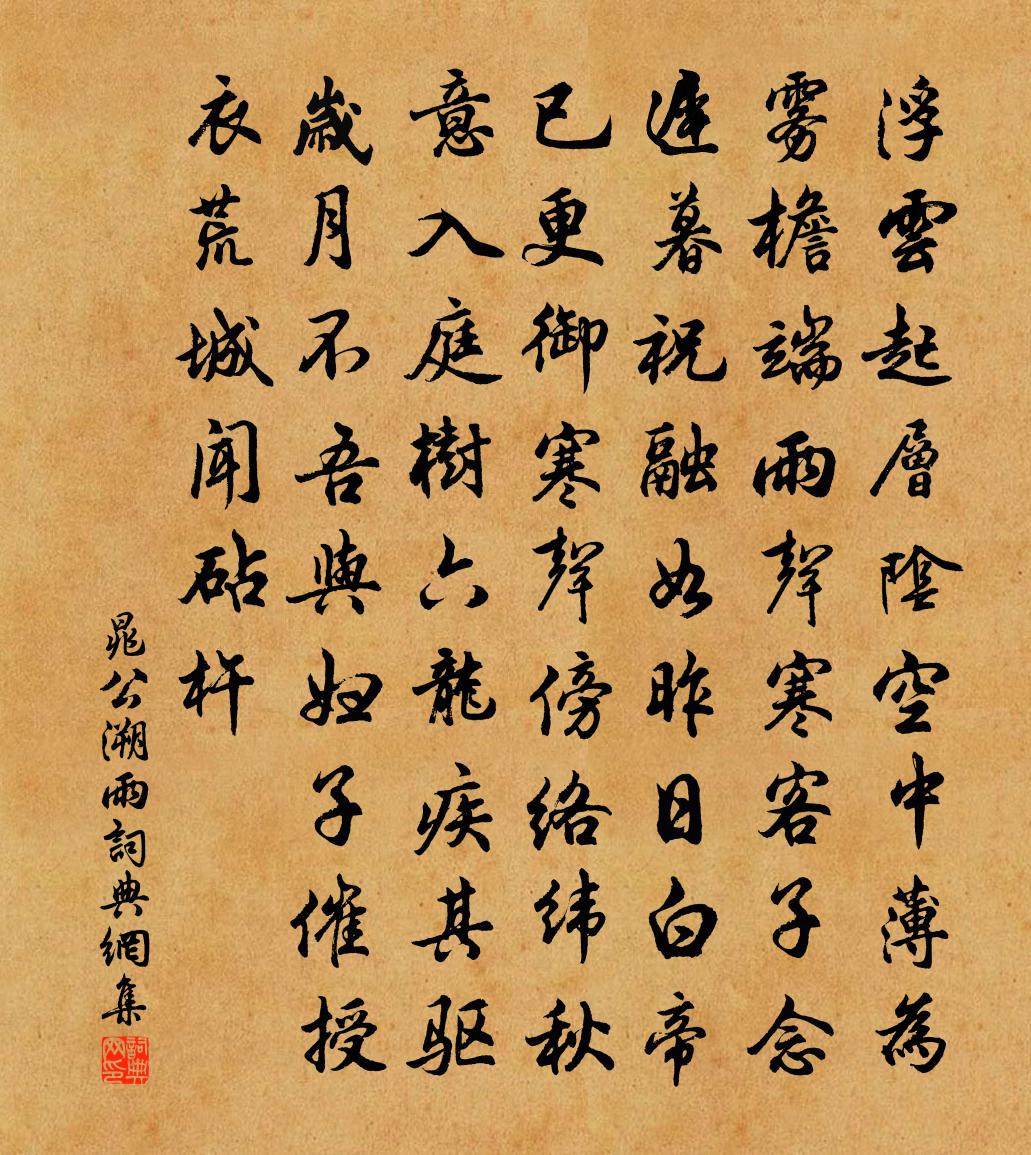 浮雲起層陰空中薄為
雰檐端雨聲寒客子念
遲暮祝融如昨日白帝
已更御寒聲傍絡緯秋
意入庭樹六龍疾其驱
歲月不吾與婦子催授
衣荒城聞砧杵
晁公溯雨詞典網集
詞典網印